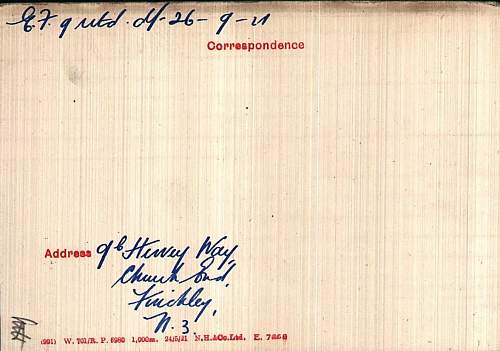 E.F. 9 retd. d/- 26-9-21
Correspondence
Address 96 Hervey Way,
Church End,
Finchley,
N. 3.
(991) W. T01/R. P. 6980 1,000ms. 24/5/21 N.H.&Co.Ltd. E. 7868